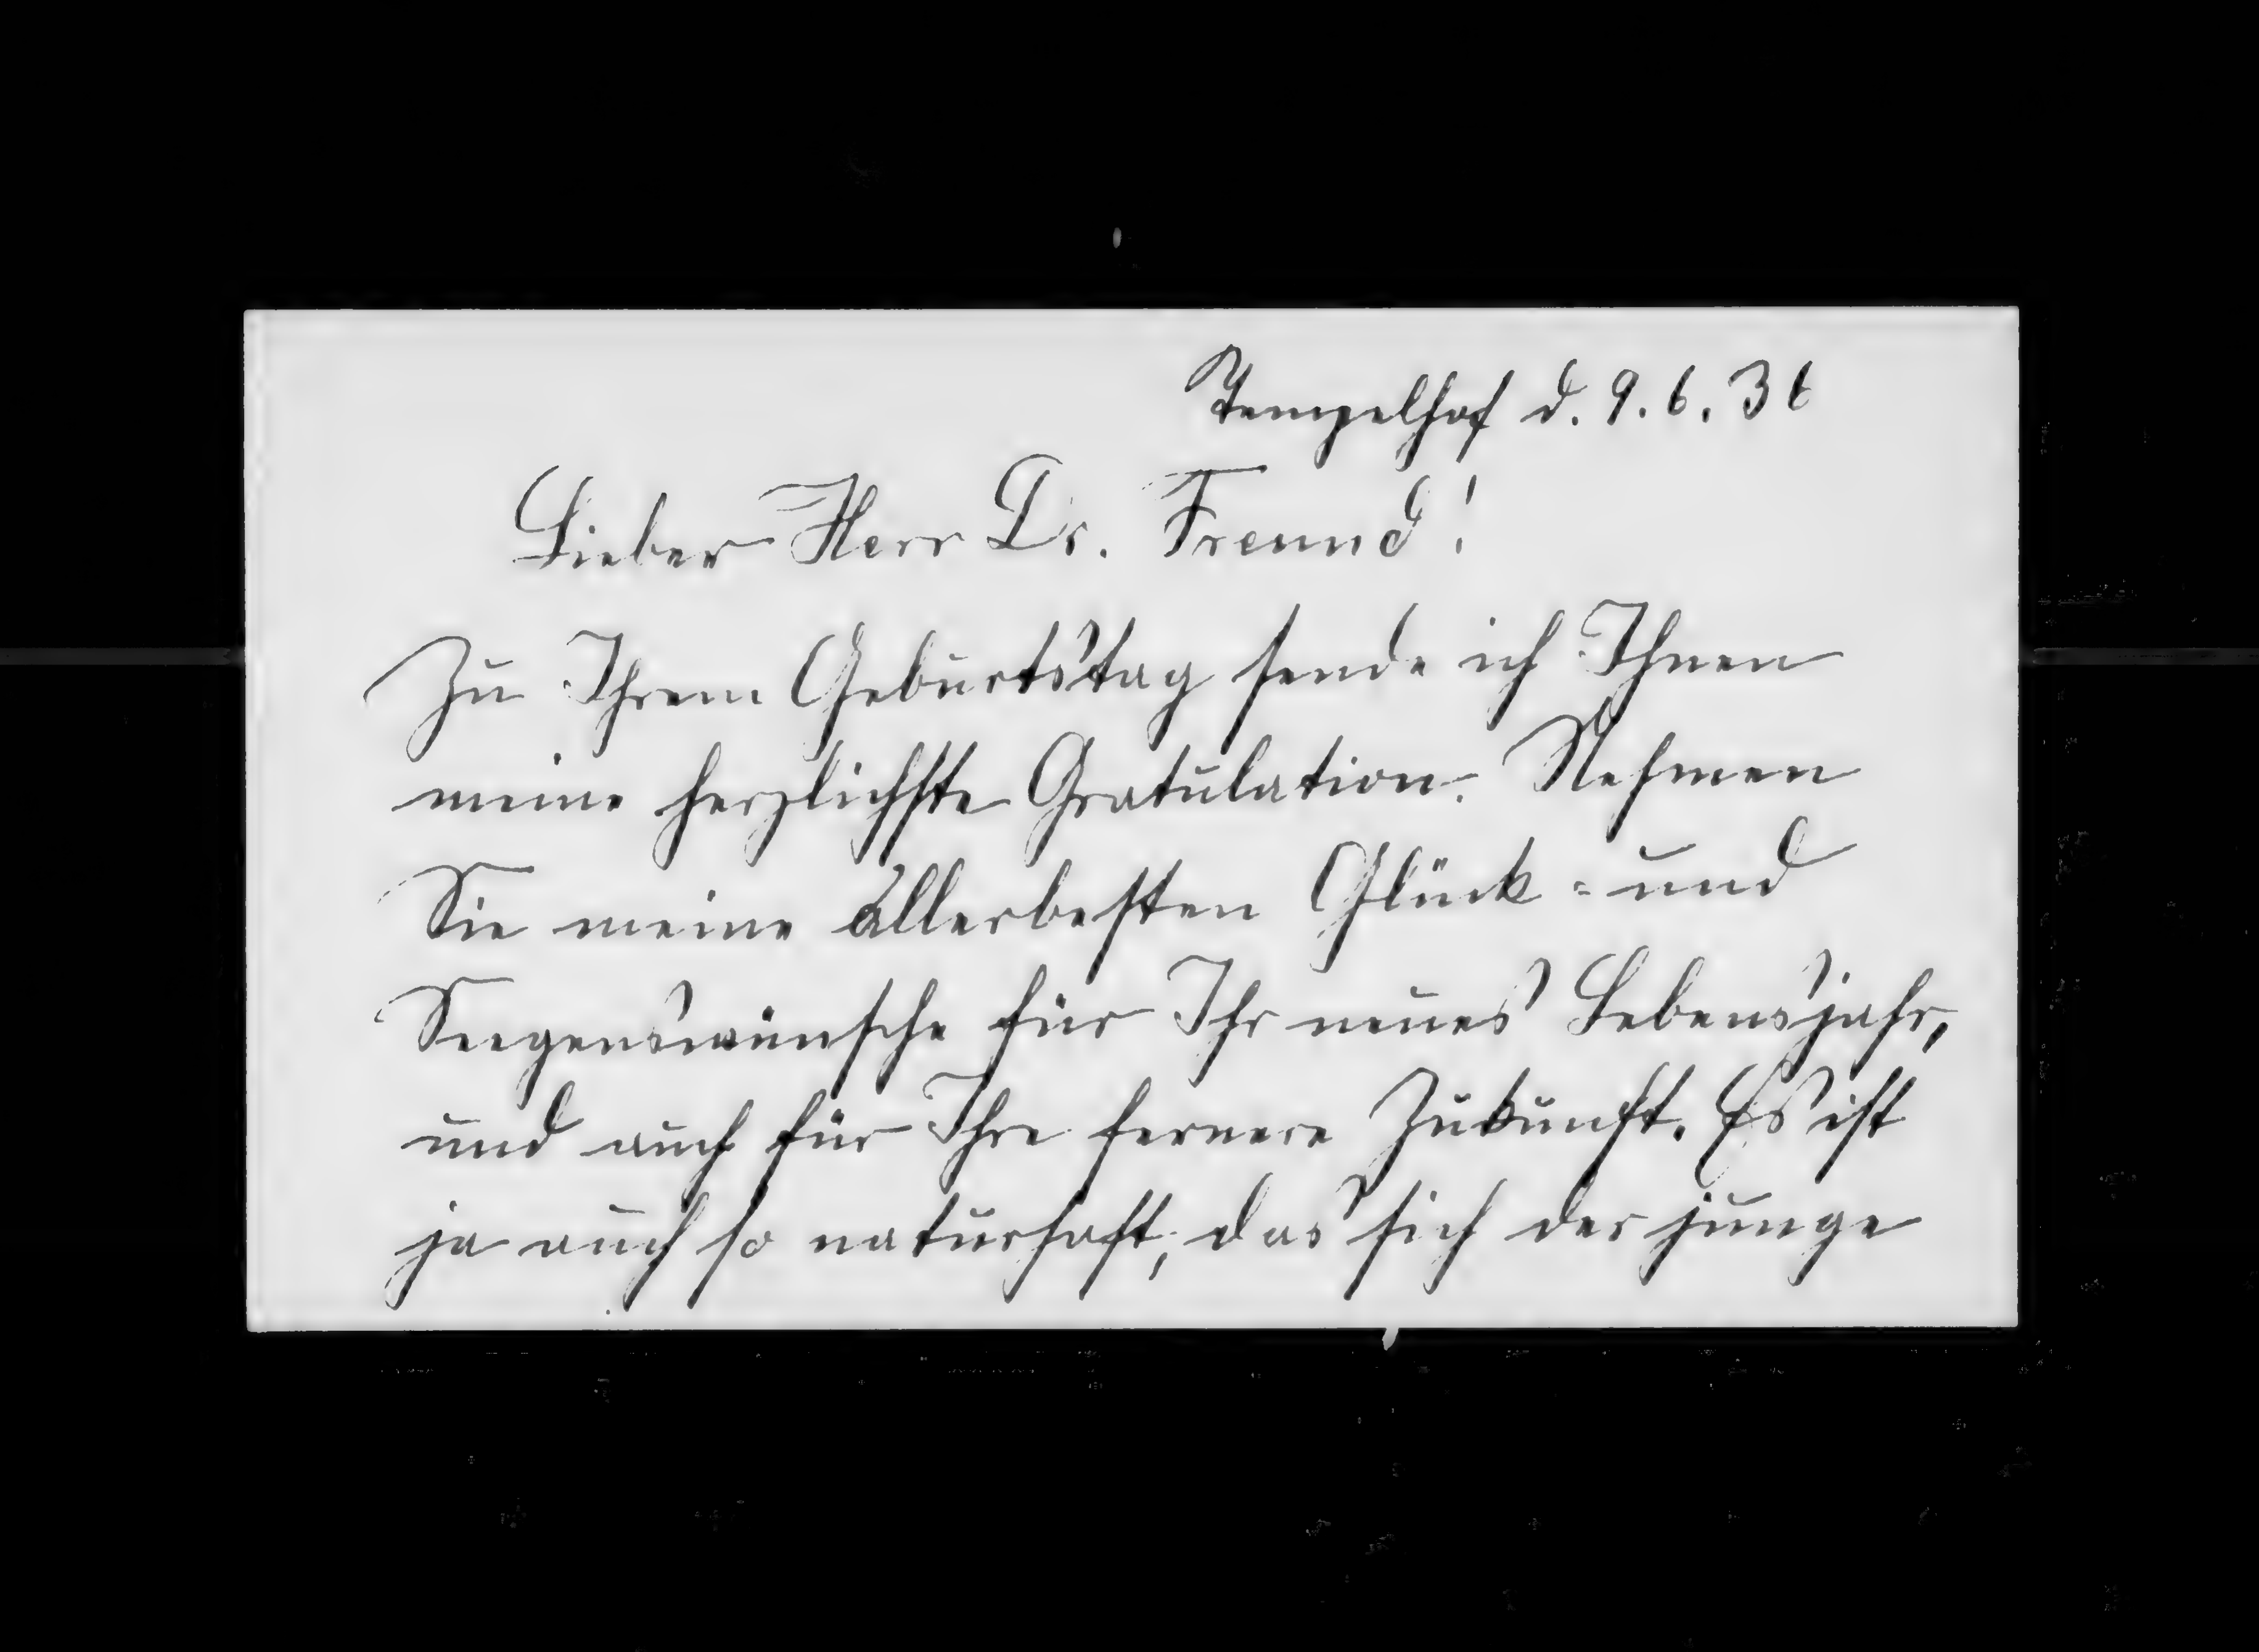 Tempelhof d. 9. 6. 36
Lieber Herr Dr. Freund!
Zu Ihrem Geburtstag sende ich Ihnen
meine herzlichste Gratulation. Nehmen
Sie meine allerbesten Glück- und
Seegenswünsche für Ihr neues Lebensjahr,
und auch für Ihre fernere Zukunft. Es ist
ja auch so naturhaft, das sich der junge